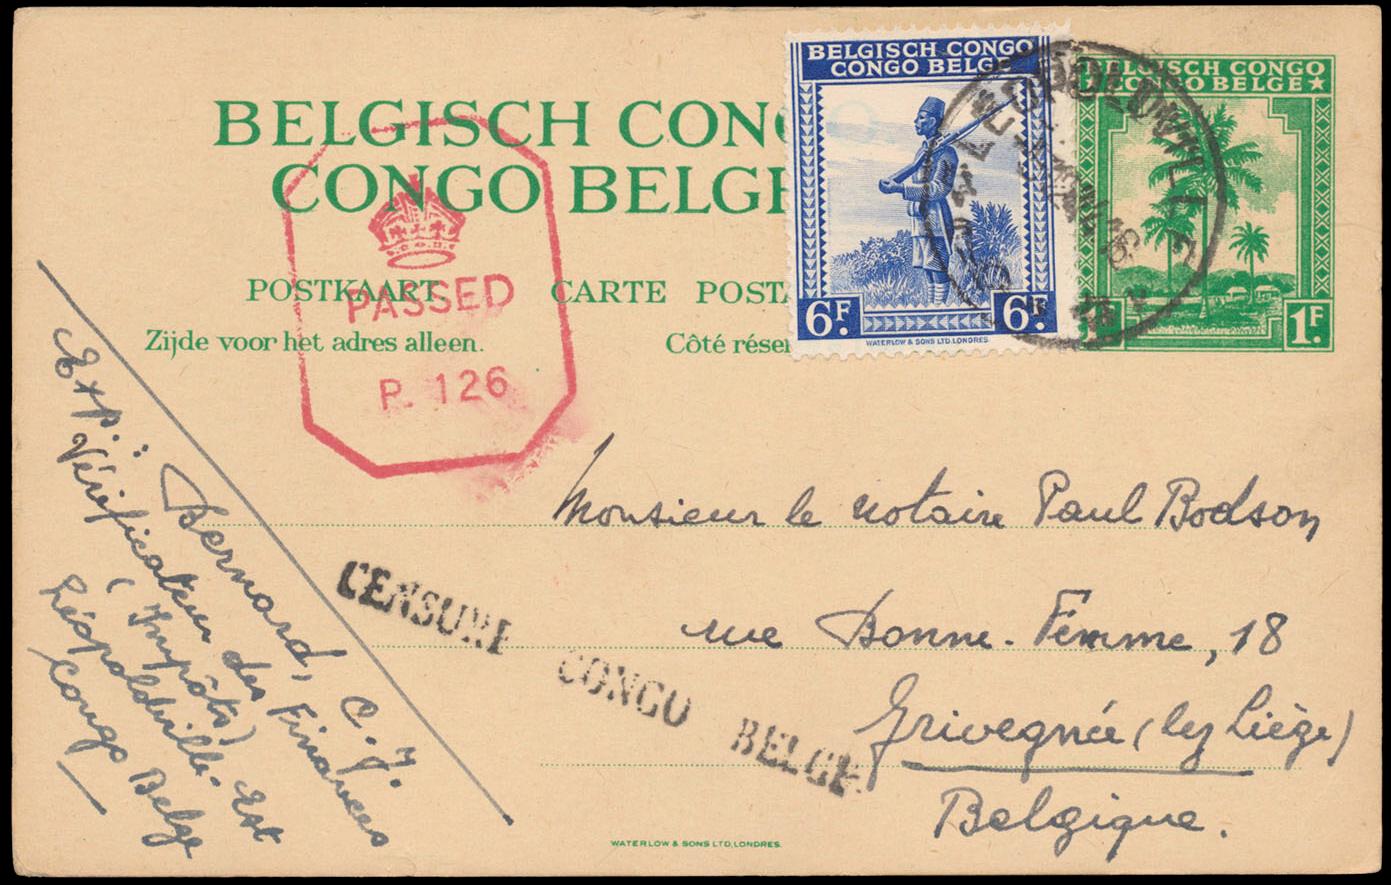 BELGISCH CON
CONGO BELG
POSTKAART
CARTE POSTA
Zijde voor het adres alleen.
Côté réser
BELGISCH CONGO
CONGO BELGE
6F.
6F.
WATERLOW & SONS LTD. LONDRES.
BELGISCH CONGO
CONGO BELGE
1F.
LEOPOLDVILLE
PASSED
P. 126
Exp. : Bernard, C.J.
Vérificateur des Finances
(Impôts)
Léopoldville - Est
Congo Belge
CENSURE CONGO BELGE
Monsieur le notaire Paul Bodson
rue Bonne-Femme, 18
Grivegnée (lez Liège)
Belgique.
WATERLOW & SONS LTD, LONDRES.